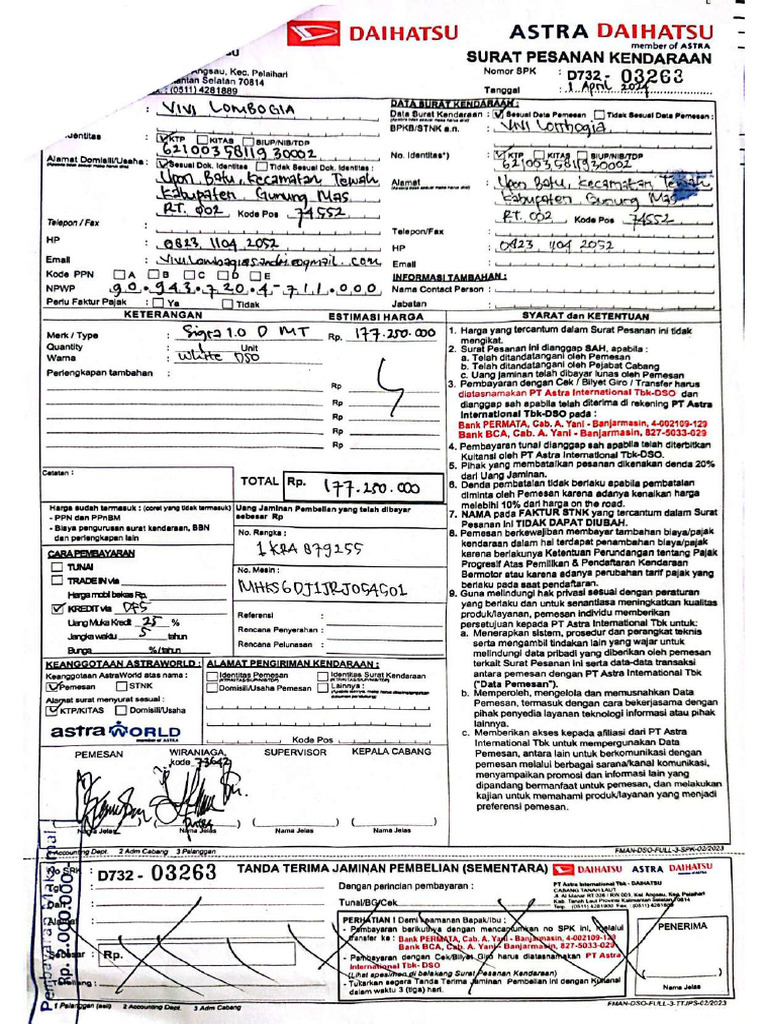 DAIHATSU ASTRA DAIHATSU
member of ASTRA
SURAT PESANAN KENDARAAN
Angsau, Kec. Pelaihari
Kalimantan Selatan 70814
(0511) 4281889
Nomor SPK : D732 - 03263
Tanggal : 1 April 2024
VIVI LOMBOGIA
Identitas : KTP KITAS SIUP/NIB/TDP
6210035811930002
Alamat Domisili/Usaha : Sesuai Dok. Identitas Tidak Sesuai Dok. Identitas :
Upon Batu, Kecamatan Tewah
Kabupaten Gunung Mas
RT. 002 Kode Pos 74552
Telepon / Fax :
HP : 0823 1104 2052
Email :
Kode PPN : A B C D E
NPWP : 90.943.720.4-711.000
Perlu Faktur Pajak : Ya Tidak
DATA SURAT KENDARAAN :
Data Surat Kendaraan : Sesuai Data Pemesan Tidak Sesuai Data Pemesan :
BPKB/STNK a.n. : Vivi Lombogia
No. Identitas*) : KTP KITAS SIUP/NIB/TDP
6210035811930002
Alamat : Upon Batu, Kecamatan Tewah
Kabupaten Gunung Mas
RT. 002 Kode Pos 74552
Telepon/Fax :
HP : 0423 1104 2052
Email :
INFORMASI TAMBAHAN :
Nama Contact Person :
Jabatan :
KETERANGAN ESTIMASI HARGA
Merk / Type : Sigra 1.0 D MT Rp. 177.250.000
Quantity : 1 Unit
Warna : White DSO
Perlengkapan tambahan :
Rp
Rp
Rp
Rp
Rp
Catatan :
TOTAL Rp. 177.250.000
SYARAT dan KETENTUAN
1. Harga yang tercantum dalam Surat Pesanan ini tidak
mengikat.
2. Surat Pesanan ini dianggap SAH, apabila :
a. Telah ditandatangani oleh Pemesan
b. Telah ditandatangani oleh Pejabat Cabang
c. Uang jaminan telah dibayar lunas oleh Pemesan
3. Pembayaran dengan Cek / Bilyet Giro / Transfer harus
diatasnamakan PT Astra International Tbk-DSO dan
dianggap sah apabila telah diterima di rekening PT Astra
International Tbk-DSO pada :
Bank PERMATA, Cab. A. Yani - Banjarmasin, 4-002109-129
Bank BCA, Cab. A. Yani - Banjarmasin, 827-5033-029
4. Pembayaran tunai dianggap sah apabila telah diterbitkan
Kuitansi oleh PT Astra International Tbk-DSO.
5. Pihak yang membatalkan pesanan dikenakan denda 20%
dari Uang Jaminan.
6. Denda pembatalan tidak berlaku apabila pembatalan
diminta oleh Pemesan karena adanya kenaikan harga
melebihi 10% dari harga on the road.
7. NAMA pada FAKTUR STNK yang tercantum dalam Surat
Pesanan ini TIDAK DAPAT DIUBAH.
8. Pemesan berkewajiban membayar tambahan biaya/pajak
kendaraan dalam hal terdapat penambahan biaya/pajak
karena berlakunya Ketentuan Perundangan tentang Pajak
Progresif Atas Pemilik & Pendaftaran Kendaraan
Bermotor atau karena adanya perubahan tarif pajak yang
berlaku pada saat pendaftaran.
9. Guna melindungi hak privasi sesuai dengan peraturan
yang berlaku dan untuk senantiasa meningkatkan kualitas
produk/layanan, pemesan individu memberikan
persetujuan kepada PT Astra International Tbk untuk:
a. Menerapkan sistem, prosedur dan perangkat teknis
serta mengambil tindakan lain yang wajar untuk
melindungi data pribadi yang diberikan oleh pemesan
terkait Surat Pesanan ini serta data-data transaksi
antara pemesan dengan PT Astra International Tbk
("Data Pemesan").
b. Memperoleh, mengelola dan memusnahkan Data
Pemesan, termasuk dengan cara bekerjasama dengan
pihak penyedia layanan teknologi informasi atau pihak
lainnya.
c. Memberikan akses kepada afiliasi dari PT Astra
International Tbk untuk mempergunakan Data
Pemesan, antara lain untuk berkomunikasi dengan
pemesan melalui berbagai sarana/kanal komunikasi,
menyampaikan promosi dan informasi lain yang
dipandang bermanfaat untuk pemesan, dan melakukan
kajian untuk memahami produk/layanan yang menjadi
preferensi pemesan.
Harga sudah termasuk : (coret yang tidak termasuk)
- PPN dan PPnBM
- Biaya pengurusan surat kendaraan, BBN
dan perlengkapan lain
CARA PEMBAYARAN
TUNAI
TRADE IN via
Harga mobil bekas Rp.
KREDIT via DFS
Uang Muka Kredit : 25 %
Jangka waktu : 5 tahun
Bunga : % / tahun
Uang Jaminan Pembelian yang telah dibayar
sebesar Rp
No. Rangka :
1KRA879255
No. Mesin :
MHKS6DJ1JRJ054501
Referensi :
Rencana Penyerahan :
Rencana Pelunasan :
KEANGGOTAAN ASTRAWORLD :
Keanggotaan AstraWorld atas nama :
Pemesan STNK
Alamat surat menyurat sesuai :
KTP/KITAS Domisili/Usaha
astraWORLD
member of ASTRA
ALAMAT PENGIRIMAN KENDARAAN :
Identitas Pemesan Identitas Surat Kendaraan
Domisili/Usaha Pemesan Lainnya :
Kode Pos
PEMESAN WIRANIAGA, SUPERVISOR KEPALA CABANG
kode 73642
Nama Jelas Nama Jelas Nama Jelas
1 Accounting Dept. 2 Adm Cabang 3 Pelanggan
FMAN-DSO-FULL-3-SPK-02/2023
D732 - 03263
TANDA TERIMA JAMINAN PEMBELIAN (SEMENTARA) DAIHATSU ASTRA DAIHATSU
Dengan perincian pembayaran :
Tunai/BG/Cek
PT Astra International Tbk - DAIHATSU
CABANG TANAH LAUT
Kab. Tanah Laut Provinsi Kalimantan Selatan 70814
PERHATIAN ! Demi keamanan Bapak/Ibu :
- Pembayaran berikutnya dengan mencantumkan no SPK ini, melalui
transfer ke : Bank PERMATA, Cab. A. Yani - Banjarmasin, 4-002109-129
Bank BCA, Cab. A. Yani - Banjarmasin, 827-5033-029
- Pembayaran dengan Cek/Bilyet Giro harus diatasnamakan PT Astra
International Tbk- DSO
(Lihat spesimen di belakang Surat Pesanan Kendaraan)
- Tukarkan segera Tanda Terima Jaminan Pembelian ini dengan Kuitansi
dalam waktu 3 (tiga) hari.
PENERIMA
Nama Jelas
Sebesar : Rp.
Pembayaran Maksimal
Rp. 1.000.000,-
1 Pelanggan (asli) 2 Accounting Dept. 3 Adm Cabang
FMAN-DSO-FULL-3-TTJPS-02/2023